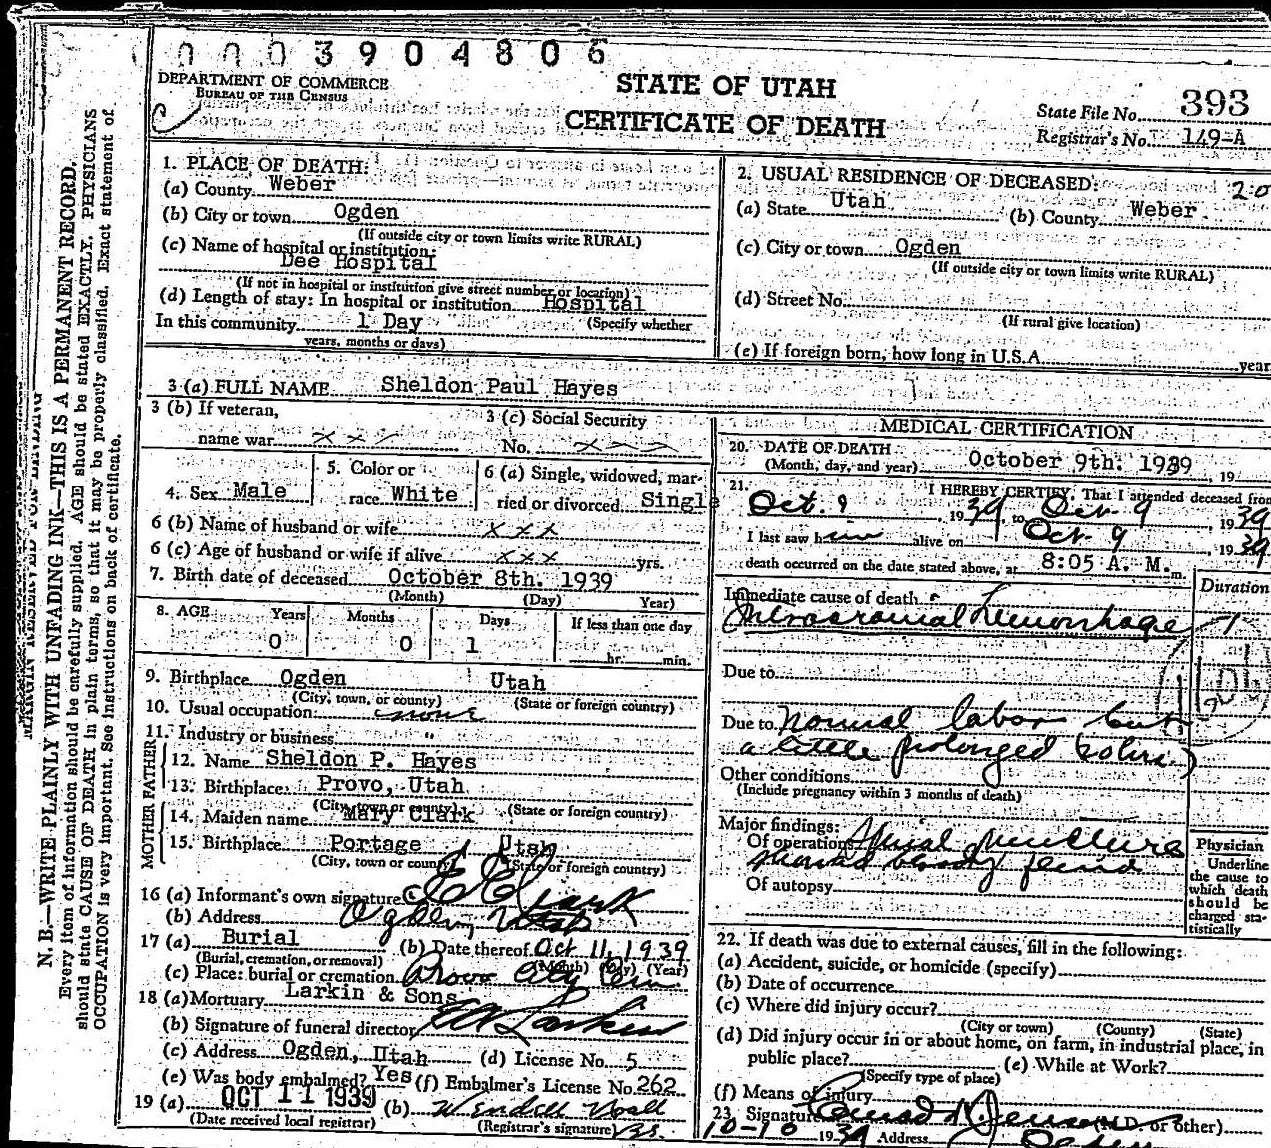 0003904806
DEPARTMENT OF COMMERCE
BUREAU OF THE CENSUS
STATE OF UTAH
CERTIFICATE OF DEATH
State File No. 393
Registrar's No. 149-A
N. B.—WRITE PLAINLY WITH UNFADING INK—THIS IS A PERMANENT RECORD.
Every item of information should be carefully supplied. AGE should be stated EXACTLY. PHYSICIANS
should state CAUSE OF DEATH in plain terms, so that it may be properly classified. Exact statement of
OCCUPATION is very important. See instructions on back of certificate.
1. PLACE OF DEATH:
(a) County Weber
(b) City or town Ogden
(If outside city or town limits write RURAL)
(c) Name of hospital or institution:
Dee Hospital
(If not in hospital or institution give street number or location)
(d) Length of stay: In hospital or institution Hospital
In this community 1 Day (Specify whether
years, months or days)
2. USUAL RESIDENCE OF DECEASED:
(a) State Utah (b) County Weber
(c) City or town Ogden
(If outside city or town limits write RURAL)
(d) Street No.
(If rural give location)
(e) If foreign born, how long in U.S.A. year
3 (a) FULL NAME Sheldon Paul Hayes
3 (b) If veteran,
name war x x x
3 (c) Social Security
No. x x x
4. Sex Male
5. Color or
race White
6 (a) Single, widowed, mar-
ried or divorced Single
6 (b) Name of husband or wife x x x
6 (c) Age of husband or wife if alive x x x yrs.
7. Birth date of deceased October 8th. 1939
(Month) (Day) Year)
8. AGE Years Months Days If less than one day
0 0 1 hr. min.
9. Birthplace Ogden Utah
(City, town, or county) (State or foreign country)
10. Usual occupation none
11. Industry or business "
FATHER
12. Name Sheldon P. Hayes
13. Birthplace Provo, Utah
(City, town or county) (State or foreign country)
MOTHER
14. Maiden name Mary Clark
15. Birthplace Portage Utah
(City, town or county) (State or foreign country)
16 (a) Informant's own signature E E Clark
(b) Address Ogden, Utah
17 (a) Burial (b) Date thereof Oct 11, 1939
(Burial, cremation, or removal) (Month) (Day) (Year)
(c) Place: burial or cremation Provo City Cem.
18 (a) Mortuary Larkin & Sons
(b) Signature of funeral director Larkin
(c) Address Ogden, Utah (d) License No. 5
(e) Was body embalmed? Yes (f) Embalmer's License No. 262
19 (a) OCT 11 1939 (b) Wendell Noall
(Date received local registrar) (Registrar's signature)
MEDICAL CERTIFICATION
20. DATE OF DEATH
(Month, day, and year) October 9th. 1939 , 19
21. I HEREBY CERTIFY, That I attended deceased from
Oct. 9 , 1939, to Oct. 9 , 1939
I last saw him alive on Oct. 9 , 1939
death occurred on the date stated above, at 8:05 A. M. m.
Immediate cause of death Duration
Intracranial hemorrhage
Due to
Due to normal labor but
a little prolonged
Other conditions
(Include pregnancy within 3 months of death)
Major findings:
Of operations Spinal puncture
shows bloody fluid
Of autopsy
Physician
Underline
the cause to
which death
should be
charged sta-
tistically
22. If death was due to external causes, fill in the following:
(a) Accident, suicide, or homicide (specify)
(b) Date of occurrence
(c) Where did injury occur?
(City or town) (County) (State)
(d) Did injury occur in or about home, on farm, in industrial place, in
public place? (e) While at Work?
(Specify type of place)
(f) Means of injury
23. Signature Conrad H Jenson (M.D. or other)
10-10 1939 Address Ogden